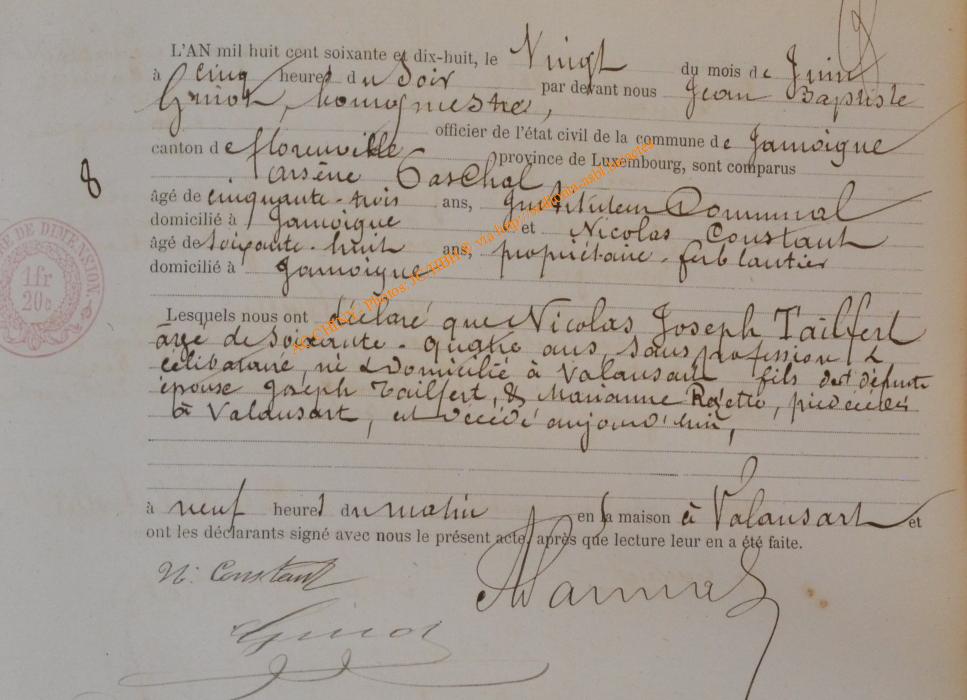 L'AN mil huit cent soixante et dix-huit, le Vingt du mois de Juin
à cinq heures du Soir par devant nous Jean Baptiste
Guiot, bourgmestre,
officier de l'état civil de la commune de Jamoigne
canton de florenville province de Luxembourg, sont comparus
arsène Paschal
8
âgé de cinquante-trois ans, Instituteur Communal
domicilié à Jamoigne et Nicolas Constant
âgé de soixante-huit ans, propriétaire-ferblantier
domicilié à Jamoigne
Lesquels nous ont déclaré que Nicolas Joseph Tailfert
âgé de soixante-quatre ans sans profession &
célibataire, né & Domicilié à Valansart fils des défunts
épouse Joseph Tailfert, & Marianne Rozette, prédécédés
à Valansart, est décédé aujourd'hui,
à neuf heures du matin en sa maison à Valansart et
ont les déclarants signé avec nous le présent acte, après que lecture leur en a été faite.
N. Constant
Guiot
DE DIMENSION
1fr
20c